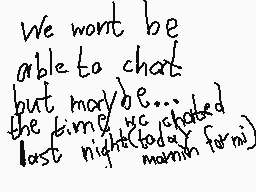 We wont be
able to chat
but maybe...
the time we chated
last night (today
mornin for mi)